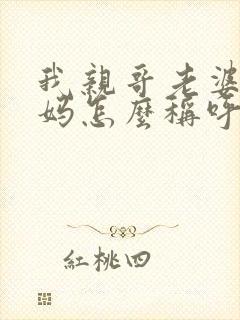 我親哥老婆
媽怎麼稱呼
紅桃四